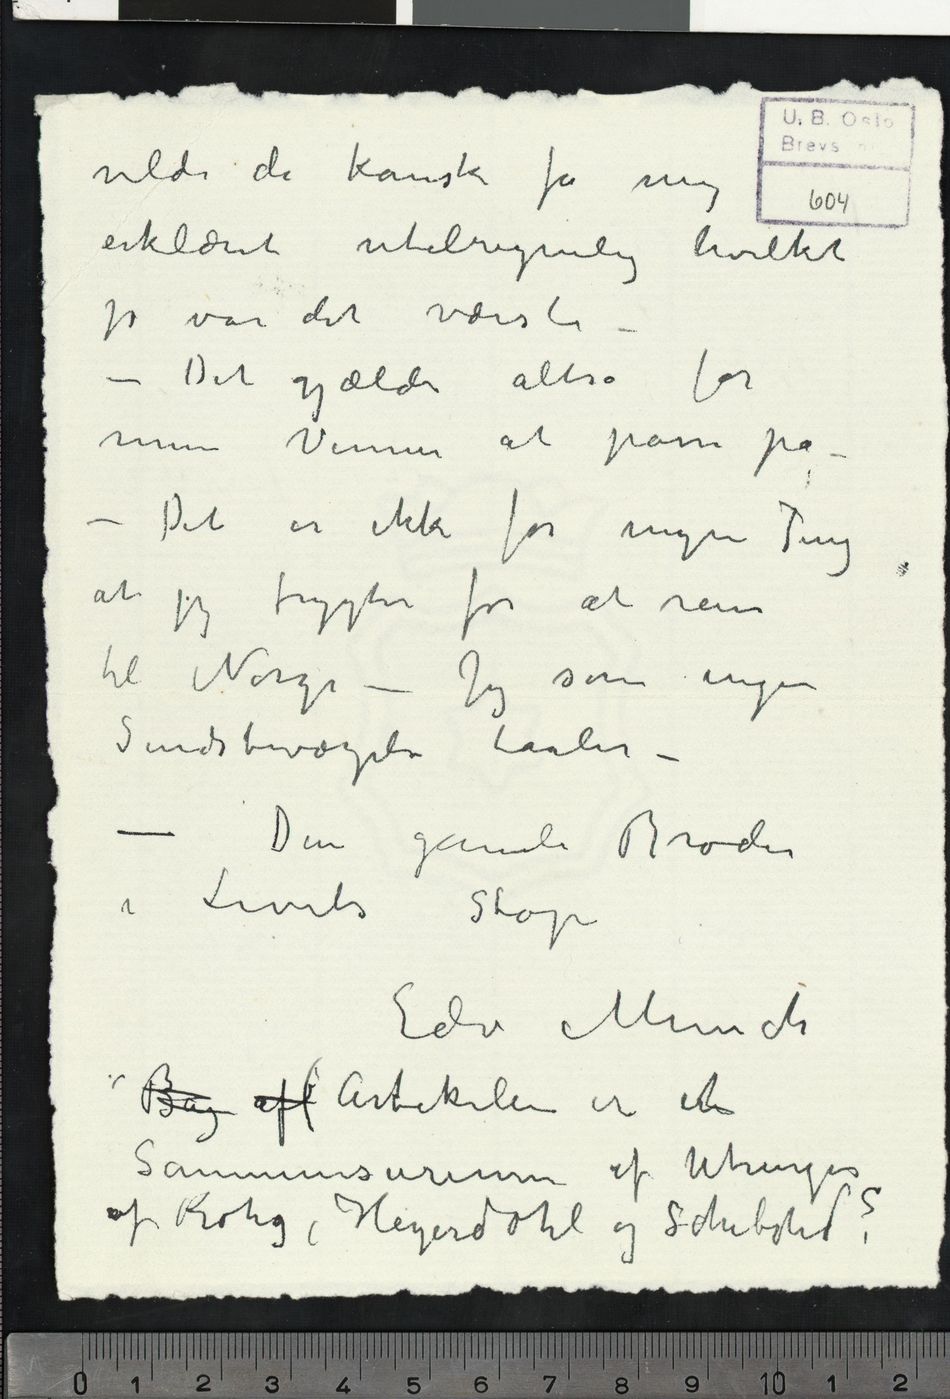 U. B. Oslo
Brevs
604
vilde de kanske få mig
erklæret utilregnelig hvilket
jo var det værste –
– Det gjælder altså for
mine Venner at passe på –
– Det er ikke for ingen Ting
at jeg frygter for at reise
til Norge – Jeg som ingen
Sindsbevægelse taaler –
– Din gamle Broder
i Livets Skog
Edv Munch
Bag af Artikelen er et
Sammensurium af Ytringer
af Krohg, Heyerdahl og Schibsted?
0 1 2 3 4 5 6 7 8 9 10 1 2